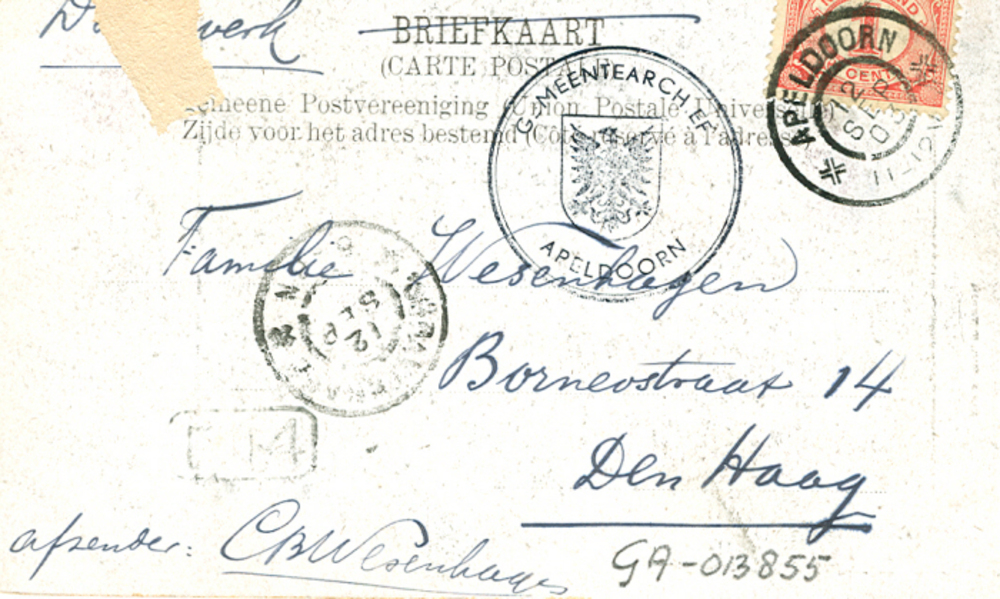 BRIEFKAART
(CARTE POSTALE)
Algemeene Postvereeniging (Union Postale Universelle)
Zijde voor het adres bestemd (Côté réservé à l'adresse)
CENT
APELDOORN
12 SEP 03
GEMEENTEARCHIEF
APELDOORN
Familie Wesenhagen
12
SEP
Borneostraat 14
Den Haag
afzender: CBWesenhagen
GA-013855